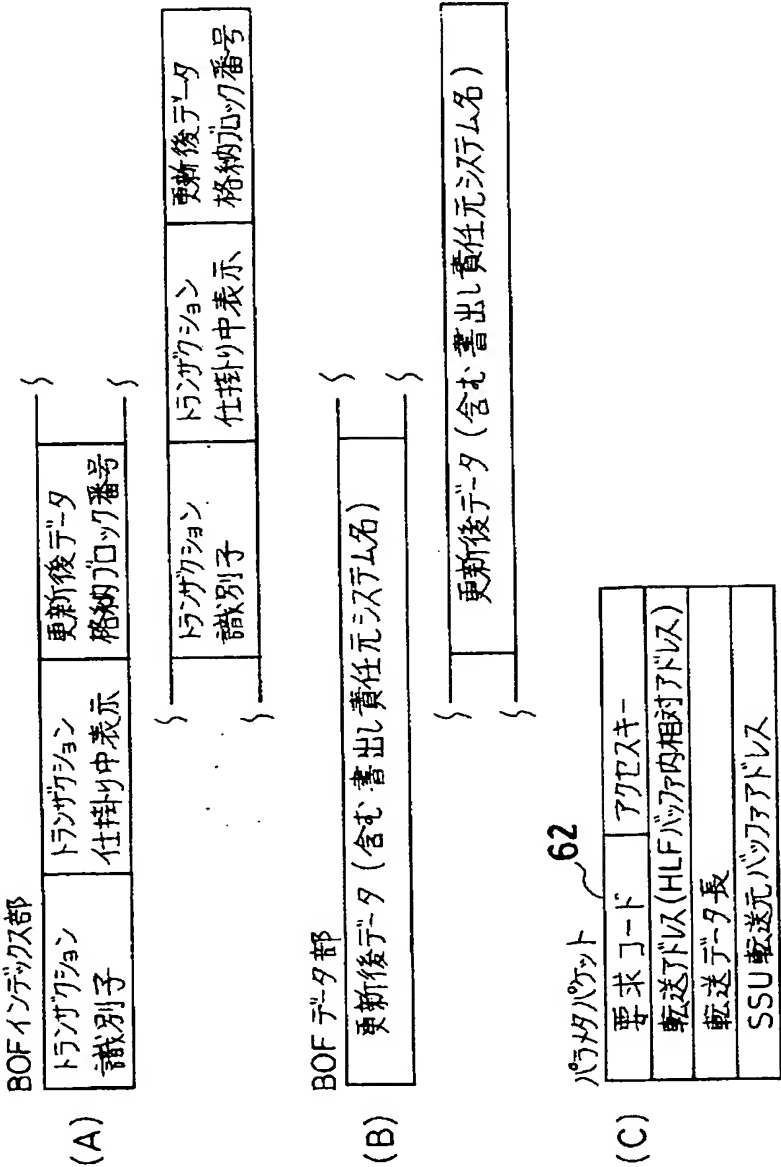 (A)
BOFインデックス部
トランザクション
識別子
トランザクション
仕掛り中表示
更新後データ
格納ブロック番号
トランザクション
識別子
トランザクション
仕掛り中表示
更新後データ
格納ブロック番号
(B)
BOFデータ部
更新後データ(含む書出し責任元システム名)
更新後データ(含む書出し責任元システム名)
(C)
パラメタパケット
62
要求コード
アクセスキー
転送アドレス(HLFバッファ内相対アドレス)
転送データ長
SSU転送元バッファアドレス